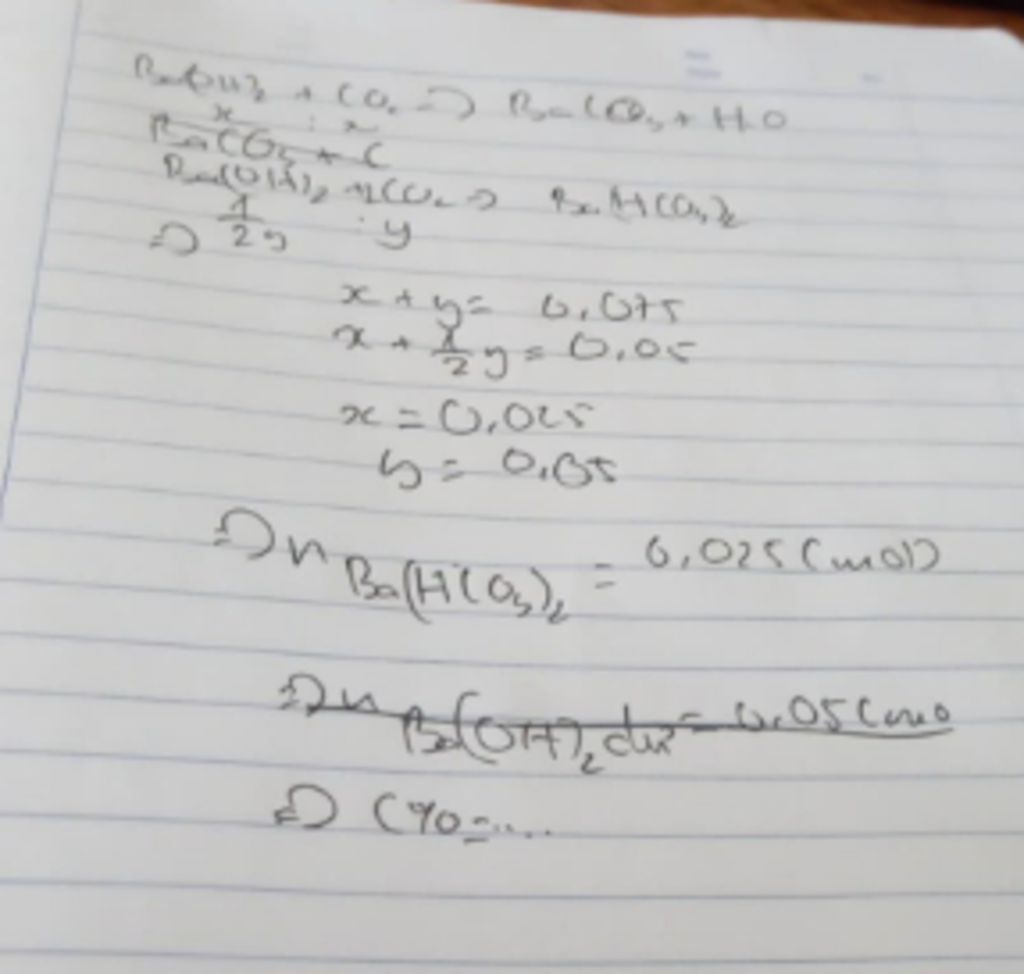 Ba(OH)2 + CO2 => BaCO3 + H2O
x : x
BaCO3 + C
Ba(OH)2 + 2CO2 => Ba(HCO3)2
=> 1/2 y : y
x + y = 0,075
x + 1/2 y = 0,05
x = 0,025
y = 0,05
=> n Ba(HCO3)2 = 0,025 (mol)
=> n Ba(OH)2 dư = 0,05 (mo
=> C% = ....